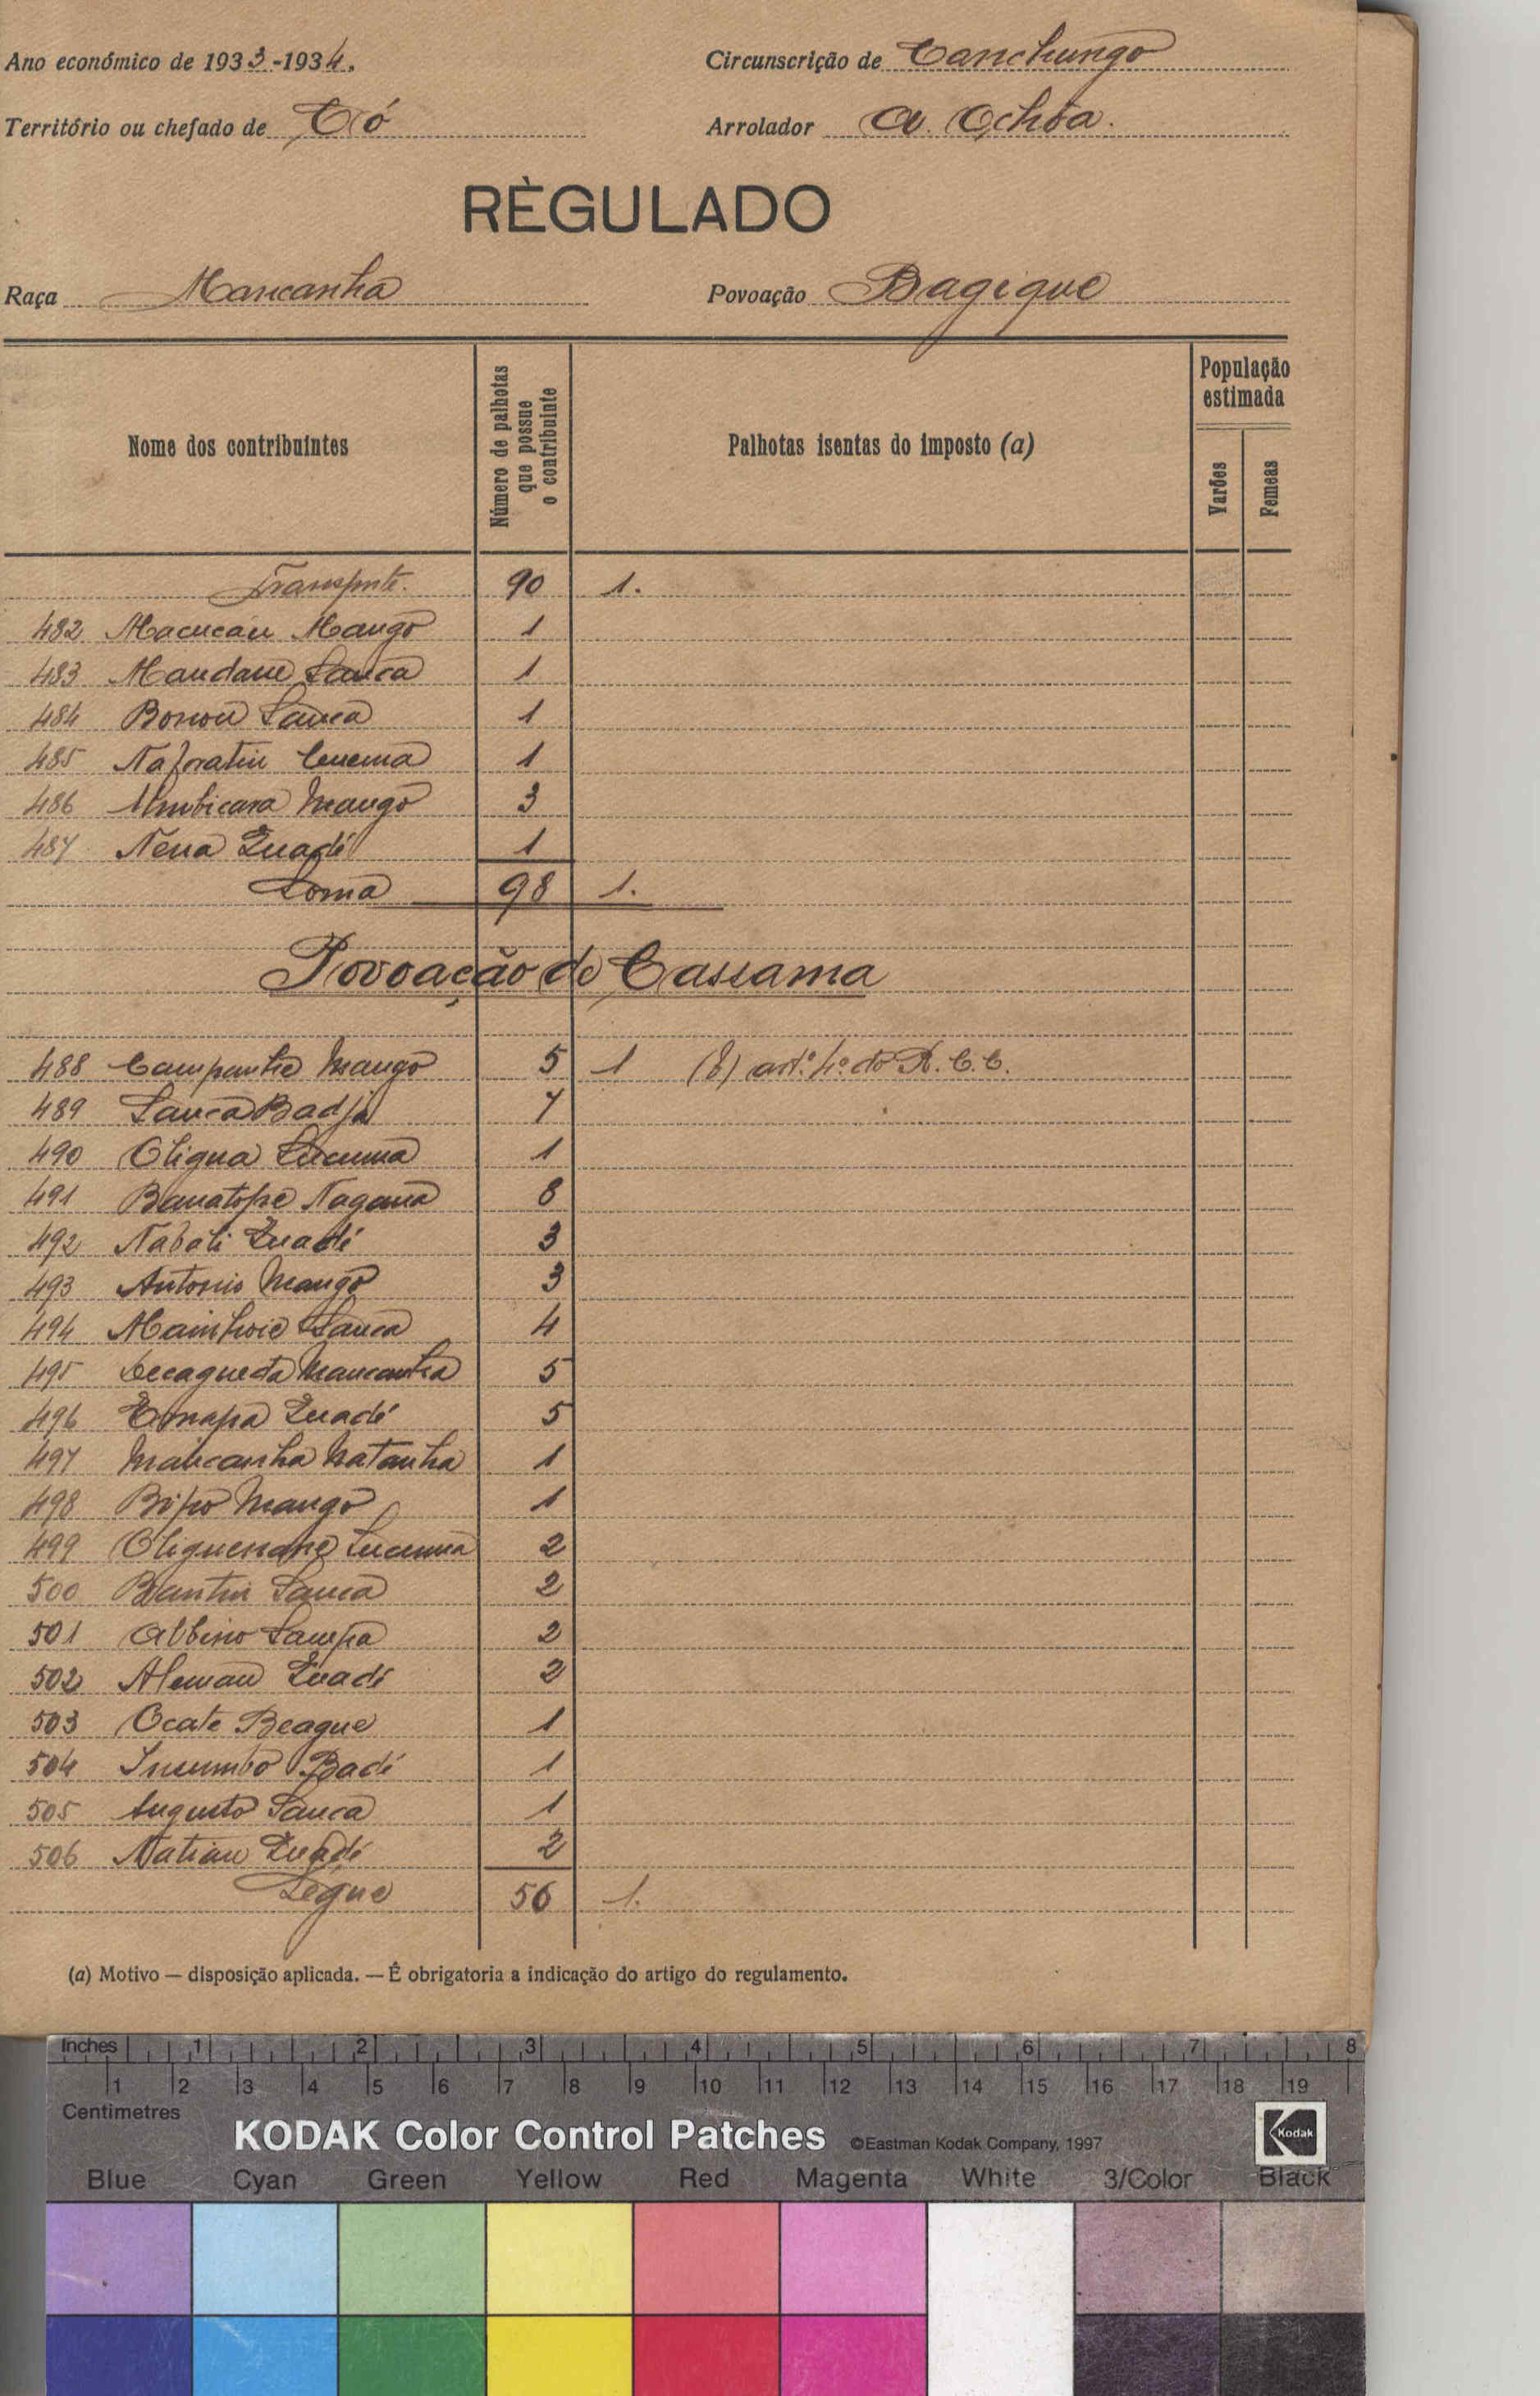 Ano económico de 1933-1934.
Circunscrição de Canchungo
Território ou chefado de Có
Arrolador A. Ochôa.
RÈGULADO
Raça Mancanha
Povoação Bagique
Nome dos contribuintes
Número de palhotas que possue o contribuinte
Palhotas isentas do imposto (a)
População estimada
Varões
Femeas
Transporte. 90 1.
482 Macucau Mango 1
483 Mandane Sanca 1
484 Sanca 1
485 1
486 Mango 3
487 Nena Quadé 1
Soma 98 1.
Povoação de Cassama
488 Campanhe Mango 5 1 (8) art.º 4.º do R. C. C.
489 Sanca Badja 7
490 Oligna 1
491 Banatope Nagana 8
492 Naboli Quadé 3
493 Antonio Mango 3
494 Sanca 4
495 Mancanha 5
496 Quadé 5
497 Mancanha Natanha 1
498 Bipo Mango 1
499 2
500 Bantin Sanca 2
501 Albino Sampa 2
502 Aleman Quadé 2
503 Ocate Beague 1
504 Insumbo Badé 1
505 Augusto Sanca 1
506 Natian Quadé 2
Segue 56 1.
(a) Motivo — disposição aplicada. — É obrigatoria a indicação do artigo do regulamento.
Inches 1 2 3 4 5 6 7 8
1 2 3 4 5 6 7 8 9 10 11 12 13 14 15 16 17 18 19
Centimetres
KODAK Color Control Patches ©Eastman Kodak Company, 1997 Kodak
Blue Cyan Green Yellow Red Magenta White 3/Color Black